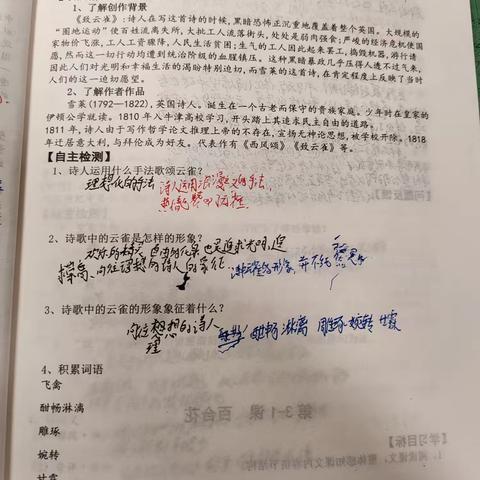 1、了解创作背景
《致云雀》:诗人在写这首诗的时候,黑暗恐怖正沉重地覆盖着整个英国。大规模的
“圈地运动”使百姓流离失所,大批工人流落街头,处处是弱肉强食;严峻的经济危机使国
家物价飞涨,工人工资骤降,人民生活贫困;生气的工人因此起来罢工,捣毁机器,游行请
愿,然而这一切行动均遭到统治阶级的血腥镇压。这种黑暗暴政几乎压得人透不过气来,
因此人们对光明和幸福生活的渴盼特别迫切,而雪莱的这首诗,在肯定程度上反映了当时
人们的这一迫切愿望。
2、了解作者作品
雪莱(1792—1822),英国诗人。诞生在一个古老而保守的贵族家庭。少年时在皇家的
伊顿公学就读。1810年入牛津大学高校学习,开头踏上其追求民主自由的道路。
1811年,诗人由于写作哲学论文推理上帝的不存在,宣扬无神论思想,被学校开除。1818
年迁居意大利,与拜伦成为好友。代表作有《西风颂》《致云雀》等。
【自主检测】
1、诗人运用什么手法歌颂云雀?
理想化的手法 诗人运用浪漫主义手法,
2、诗歌中的云雀是怎样的形象?
欢乐的 自由的 也是追求光明,追
的诗人的象征.
3、诗歌中的云雀的形象象征着什么?
理想的诗人 酣畅淋漓 雕琢 婉转 甘霖
4、积累词语
飞禽
酣畅淋漓
雕琢
婉转
甘霖
第3-1课 百合花
【学习目标】